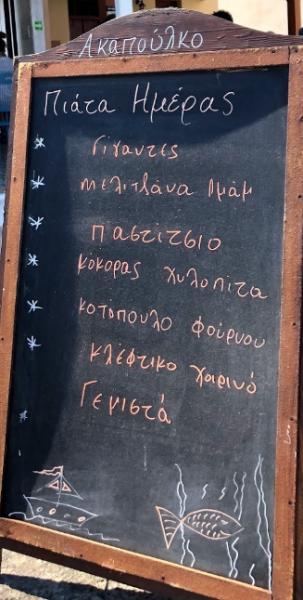 Ακαπούλκο
Πιάτα Ημέρας
* Γίγαντες
* Μελιτζάνα Ιμάμ
* Παστίτσιο
* Κόκορας χυλοπίτα
* Κοτόπουλο φούρνου
* Κλέφτικο χοιρινό
* Γεμιστά